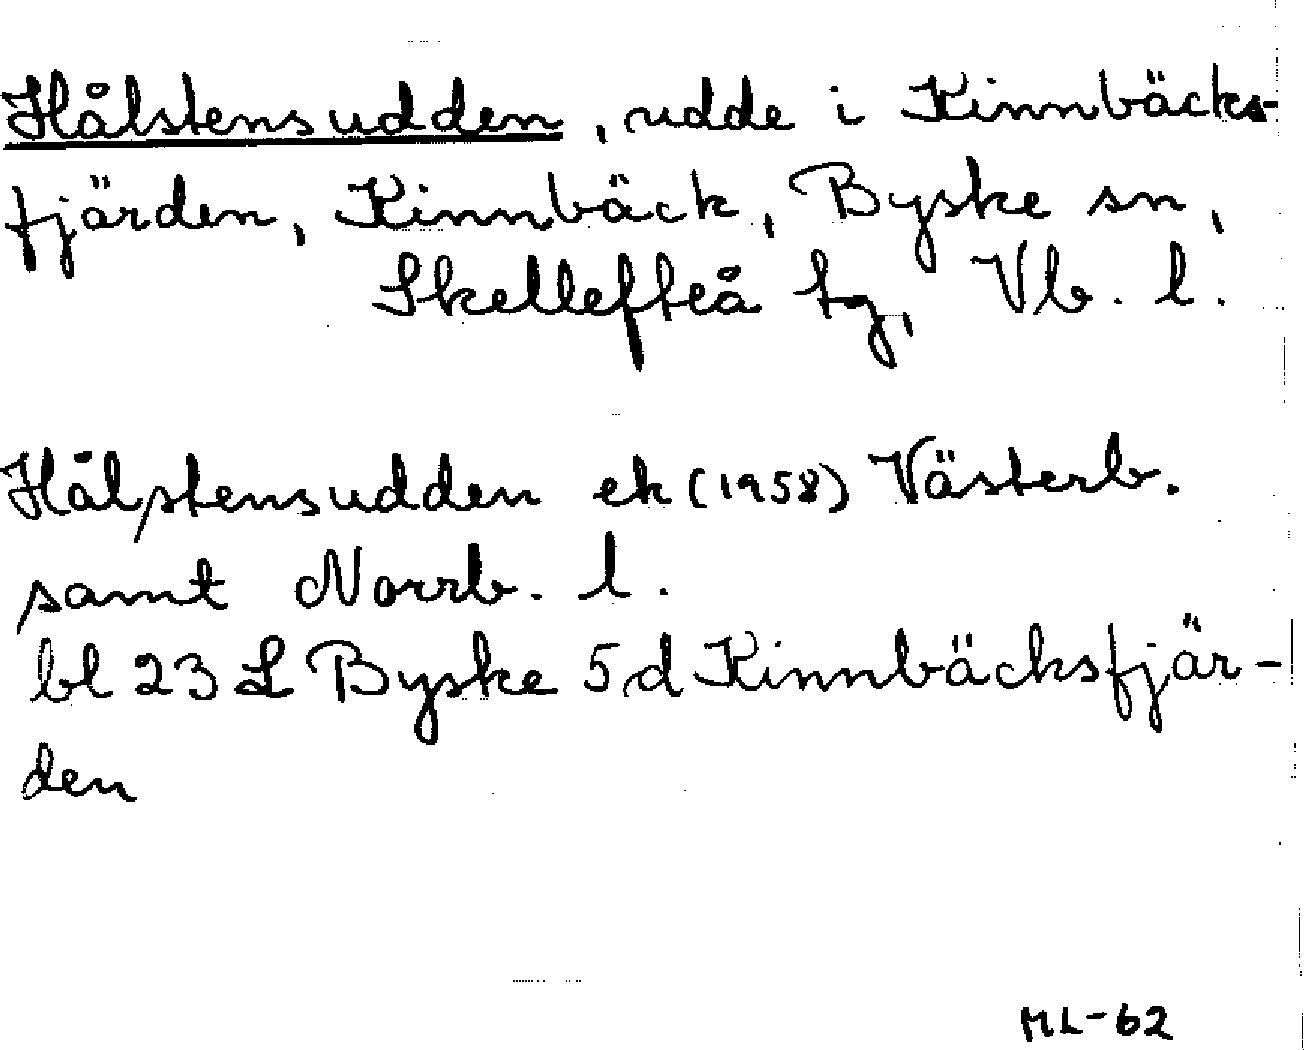 Hålstensudden, udde i Kinnbäcks-
fjärden, Kinnbäck, Byske sn,
Skellefteå tg, Vb. l.
Hålstensudden ek (1958) Västerb.
samt Norrb. l.
bl 23 L Byske 5 d Kinnbäcksfjär-
den
ML-62